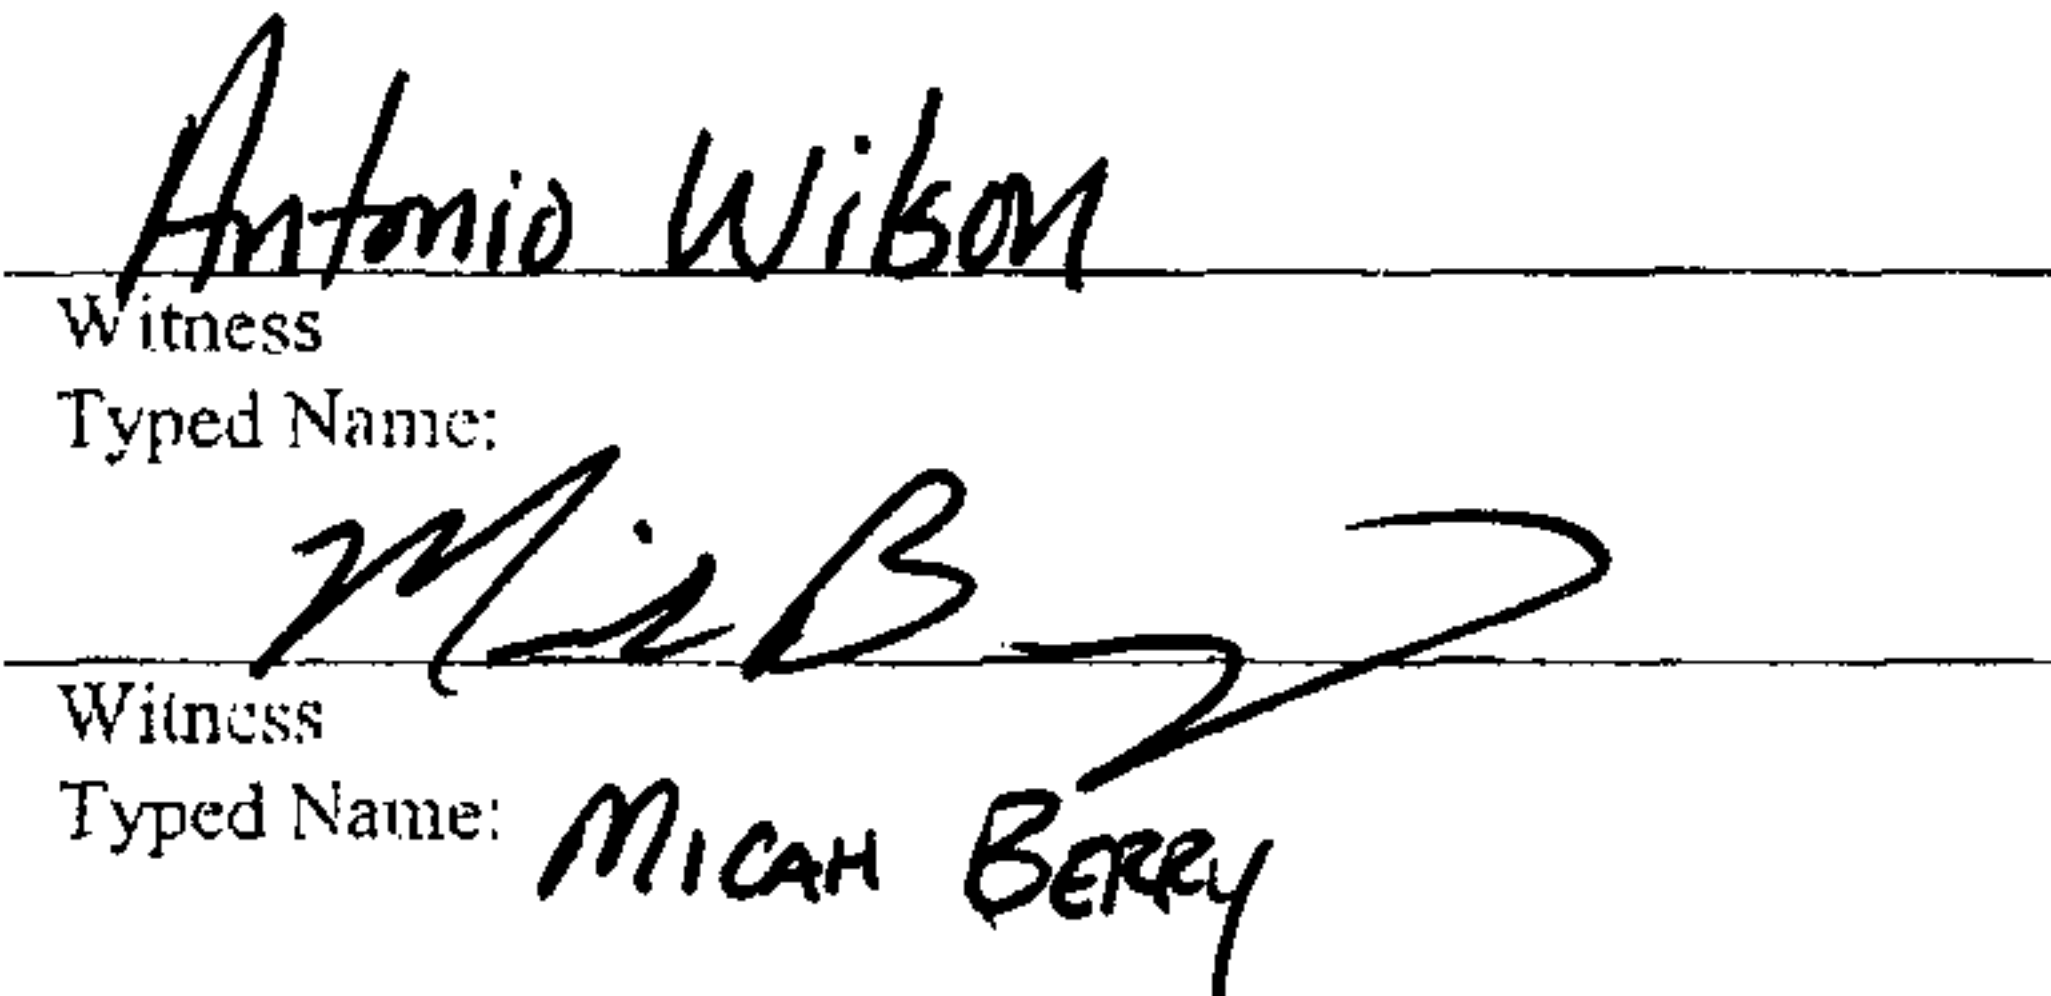 Antonio Wilson
Witness
Typed Name:
Witness
Typed Name: MICAH BERRY